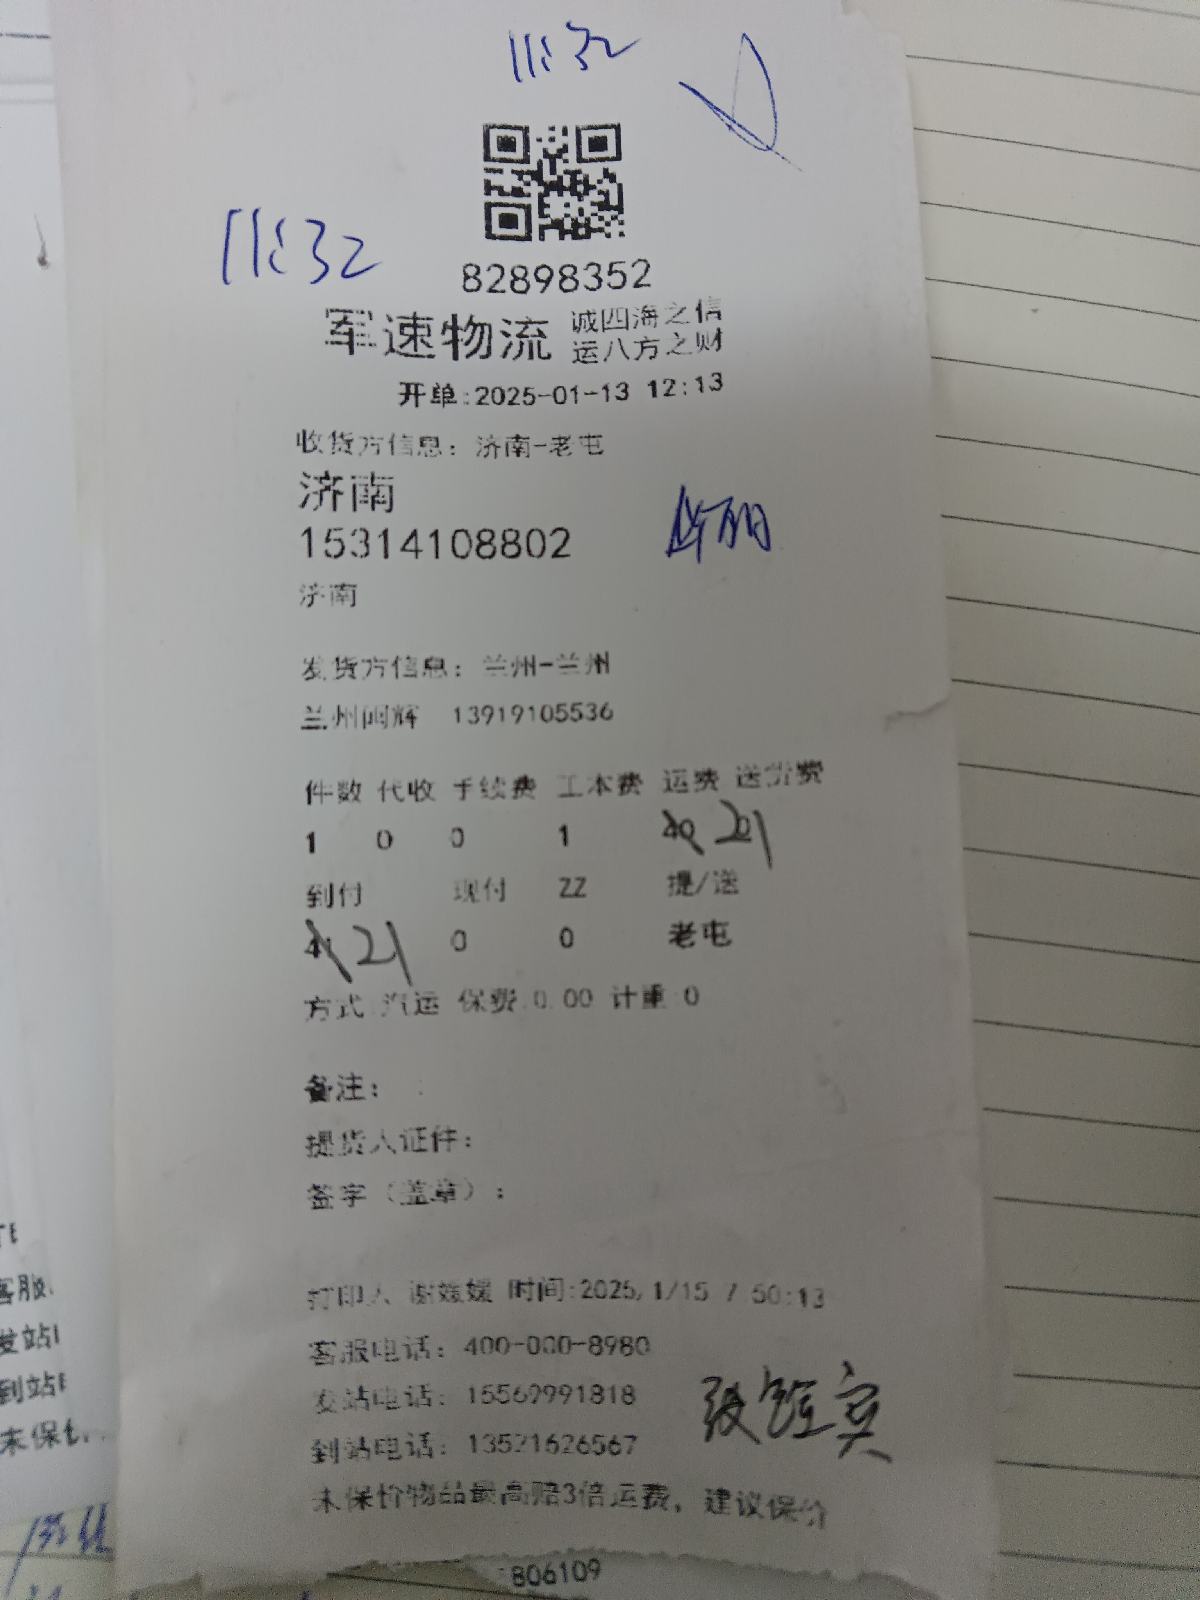 11:32
11:32
82898352
军速物流 诚四海之信
运八方之财
开单:2025-01-13 12:13
收货方信息: 济南-老屯
济南
15314108802
济南
发货方信息: 兰州-兰州
兰州闽辉 13919105536
件数 代收 手续费 工本费 运费 送货费
1 0 0 1 40 20
到付 现付 ZZ 提/送
41 21 0 0 老屯
方式 汽运 保费:0.00 计重:0
备注:
提货人证件:
签字（盖章）:
打印人 谢媛媛 时间:2025/1/15 7:50:13
客服电话: 400-000-8980
发站电话: 15569991818
到站电话: 13521626567
未保价物品最高赔3倍运费, 建议保价
806109
客服
发站
到站
未保